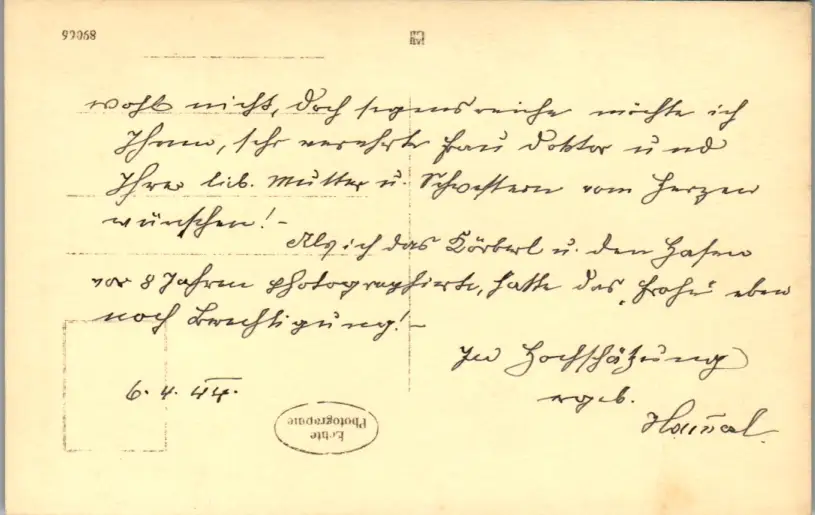 99068
wohl nicht, doch segensreiche möchte ich
Ihnen, sehr verehrte Frau Doktor und
Ihrer lieb. Mutter u. Schwestern vom Herzen
wünschen! -
Als ich das Körberl u. den Hasen
vor 8 Jahren photographierte, hatte das „Frohe" eben
noch Berechtigung! -
In Hochschätzung
ergeb.
6. 4. 44.
Echte
Photographie